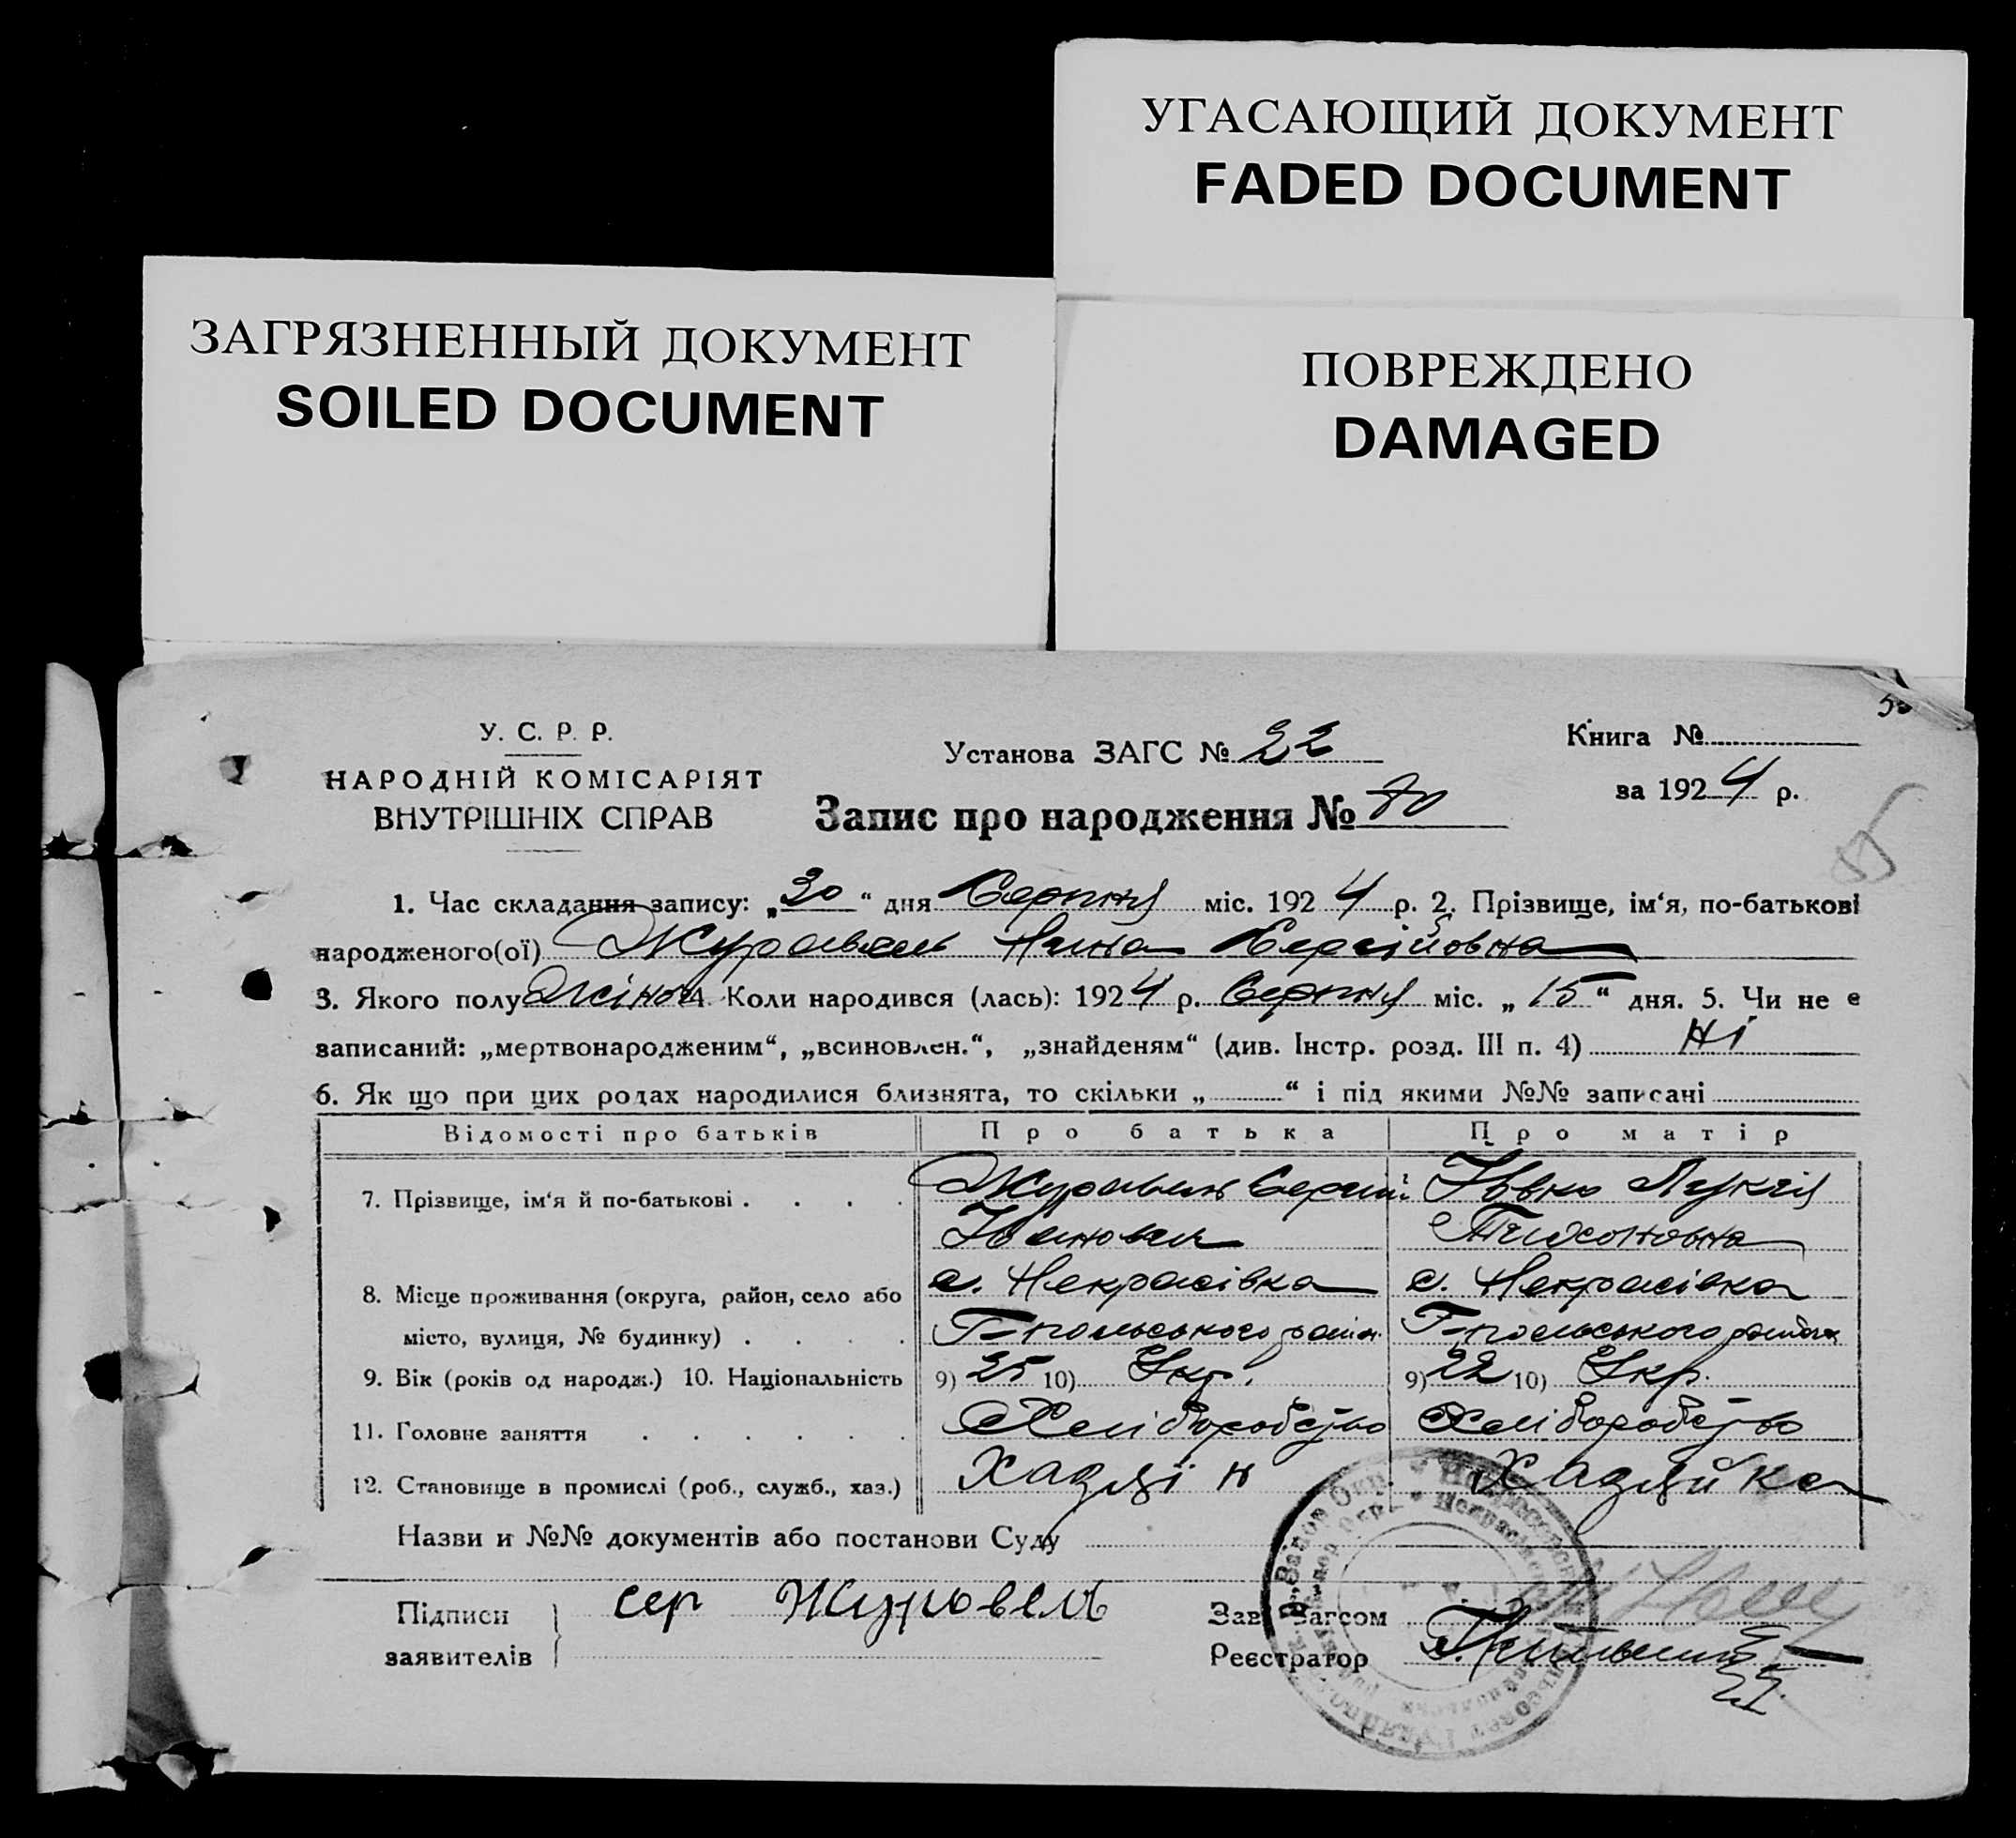 УГАСАЮЩИЙ ДОКУМЕНТ
FADED DOCUMENT
ЗАГРЯЗНЕННЫЙ ДОКУМЕНТ
SOILED DOCUMENT
ПОВРЕЖДЕНО
DAMAGED
У. С. Р. Р.
НАРОДНІЙ КОМІСАРІЯТ
ВНУТРІШНІХ СПРАВ
Установа ЗАГС № 22
Запис про народження № 80
Книга №
за 1924 р.
1. Час складання запису: „30“ дня Серпня міс. 1924 р. 2. Прізвище, ім‘я, по-батькові
народженого(ої) Журавель Нина Сергійовна
3. Якого полу Жіноч 4. Коли народився (лась): 1924 р. Серпня міс. „15“ дня. 5. Чи не є
записаний: „мертвонародженим“, „всиновлен.“, „знайденям“ (див. Інстр. розд. III п. 4) Ні
6. Як що при цих родах народилися близнята, то скільки „ “ і під якими №№ записані
Відомості про батьків Про батька Про матір
7. Прізвище, ім‘я й по-батькові Журавель Сергій Івко Лукія
Іванович Тихоновна
с. Некрасівка с. Некрасівка
8. Місце проживання (округа, район, село або
місто, вулиця, № будинку) Г-польського район. Г-польського района
9. Вік (років од народж.) 10. Національність 9) 25 10) Укр. 9) 22 10) Укр.
11. Головне заняття Хліборобство Хліборобство
12. Становище в промислі (роб., служб., хаз.) Хазяін Хазяйка
Назви и №№ документів або постанови Суду
Підписи заявителів сер Журовель
Зав. Загсом
Реєстратор